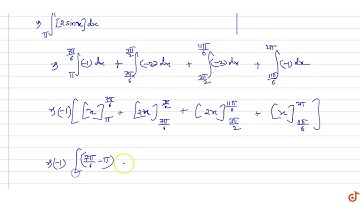 ⇒ ∫_π [2sinx] dx
⇒ ∫_π^{7π/6} (-1) dx + ∫_{7π/6}^{3π/2} (-2) dx + ∫_{3π/2}^{11π/6} (-2) dx + ∫_{11π/6}^{2π} (-1) dx
⇒ (-1) [ [x]_π^{7π/6} + [2x]_{7π/6}^{3π/2} + [2x]_{3π/2}^{11π/6} + [x]_{11π/6}^{2π} ]
⇒ (-1) [ (7π/6 - π)